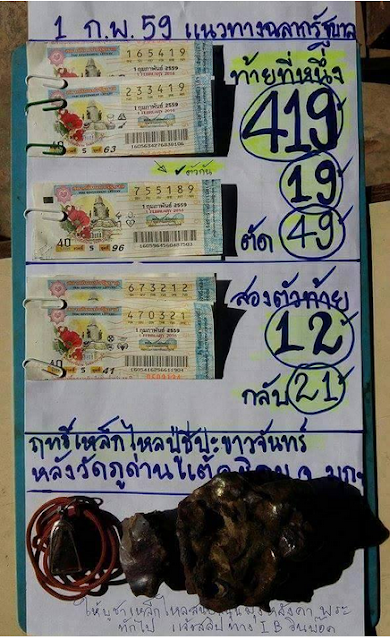 1 ก.พ. 59 แนวทางฉลากรัฐบาล
165419
1 กุมภาพันธ์ 2559
ท้ายที่หนึ่ง
233419
1 กุมภาพันธ์ 2559
1 FEBRUARY 2016
419
40 5 63
19
755189
1 กุมภาพันธ์ 2559
1 FEBRUARY 2016
ตัด 49
40 5 96
673212
1 กุมภาพันธ์ 2559
สองตัวท้าย
470321
1 กุมภาพันธ์ 2559
12
40 5 41
กลับ 21
ฤทธิ์เหล็กไหลปู่ชีปะขาวจันทร์
หลังวัดภูด่านแต้
ทักไป แจ้งสลิปทาง IB อินบ๊อก